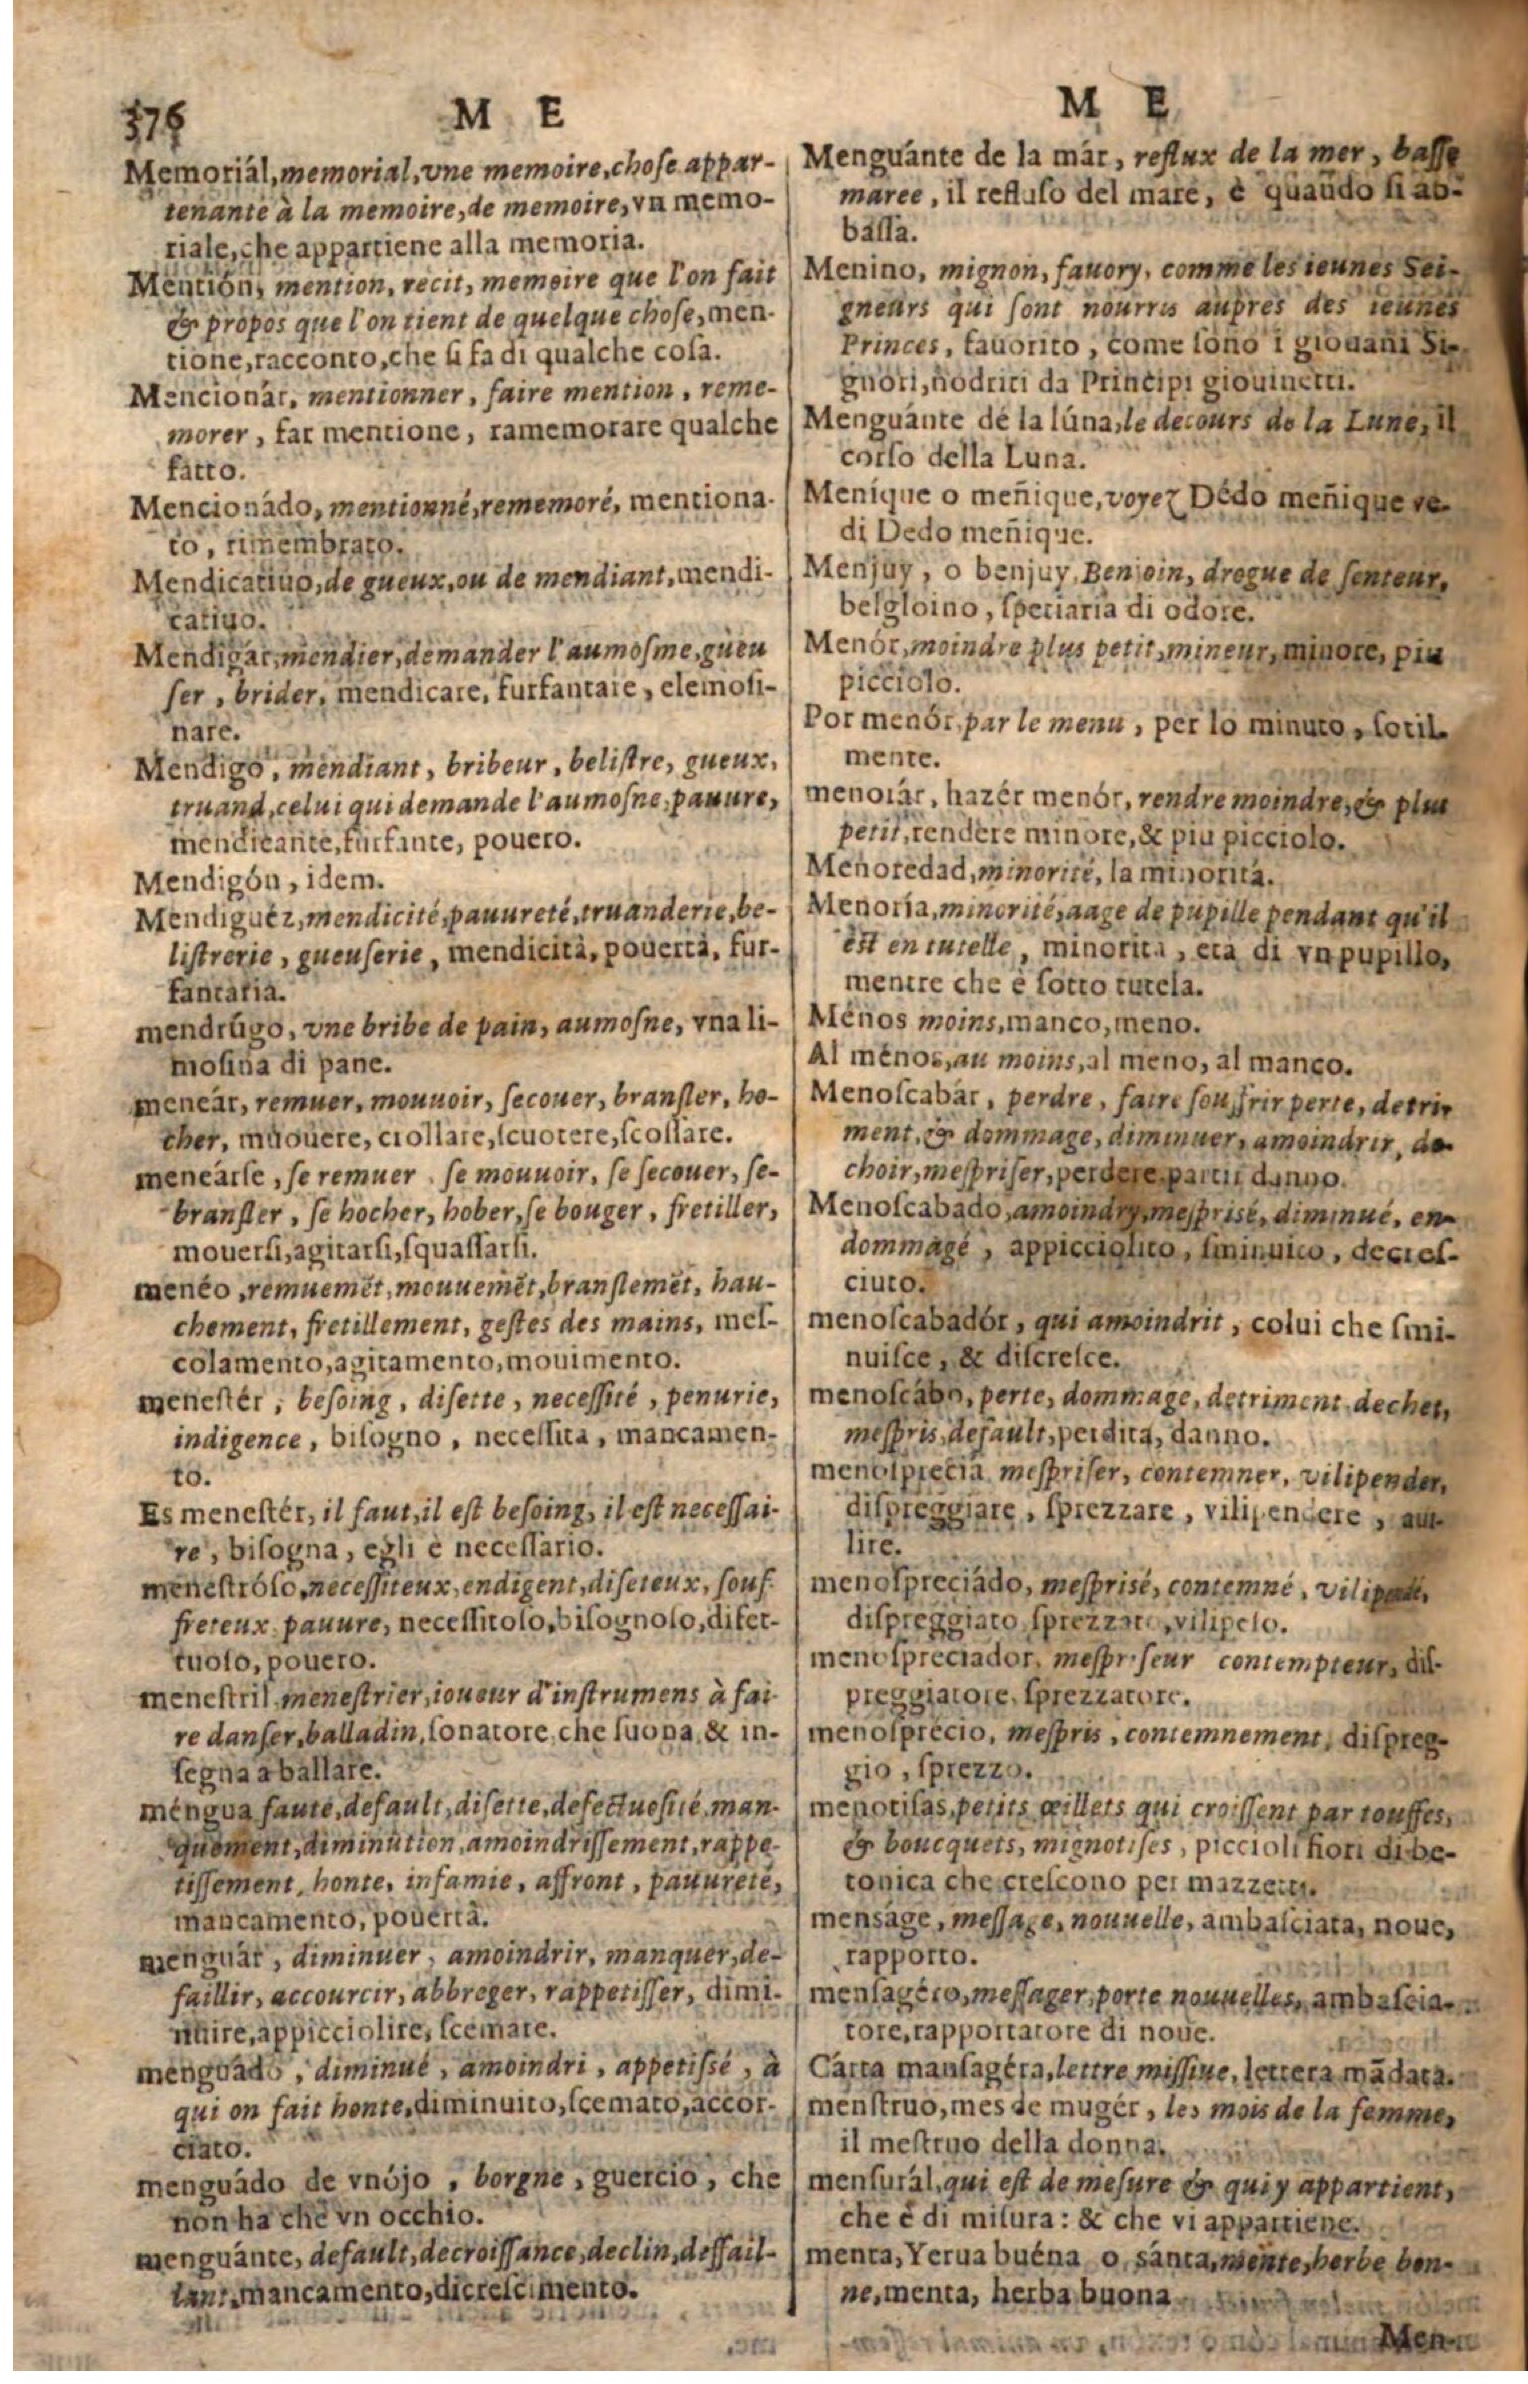 376 M E
Memoriál, memorial, vne memoire, chose appar-
tenante à la memoire, de memoire, vn memo-
riale, che appartiene alla memoria.
Mentión, mention, recit, memoire que l'on fait
& propos que l'on tient de quelque chose, men-
tione, racconto, che si fa di qualche cosa.
Mencionár, mentionner, faire mention, reme-
morer, far mentione, ramemorare qualche
fatto.
Mencionádo, mentionné, rememoré, mentiona-
to, rimembrato.
Mendicatiuo, de gueux, ou de mendiant, mendi-
catiuo.
Mendigár, mendier, demander l'aumosme, gueu
ser, brider, mendicare, furfantare, elemosi-
nare.
Mendigo, mendiant, bribeur, belistre, gueux,
truand, celui qui demande l'aumosne, pauure,
mendicante, furfante, pouero.
Mendigón, idem.
Mendiguéz, mendicité, pauureté, truanderie, be-
listrerie, gueuserie, mendicità, pouertà, fur-
fantaria.
mendrúgo, vne bribe de pain, aumosne, vna li-
mosina di pane.
meneár, remuer, mouuoir, secouer, bransler, ho-
cher, muouere, crollare, scuotere, scossare.
meneárse, se remuer se mouuoir, se secouer, se-
bransler, se hocher, hober, se bouger, fretiller,
mouersi, agitarsi, squassarsi.
menéo, remuemẽt, mouuemẽt, branslemẽt, hau-
chement, fretillement, gestes des mains, mes-
colamento, agitamento, mouimento.
menestér, besoing, disette, necessité, penurie,
indigence, bisogno, necessita, mancamen-
to.
Es menestér, il faut, il est besoing, il est necessai-
re, bisogna, egli è necessario.
menestróso, necessiteux, endigent, diseteux, souf
freteux pauure, necessitoso, bisognoso, difet-
tuoso, pouero.
menestril menestrier, ioueur d'instrumens à fai
re danser, balladin, sonatore, che suona, & in-
segna a ballare.
méngua faute, default, disette, defectuesité, man-
quement, diminution, amoindrissement, rappe-
tissement, honte, infamie, affront, pauureté,
mancamento, pouertà.
menguár, diminuer, amoindrir, manquer, de-
faillir, accourcir, abbreger, rappetisser, dimi-
nuire, appicciolire, scemare.
menguádo, diminué, amoindri, appetissé, à
qui on fait honte, diminuito, scemato, accor-
ciato.
menguádo de vnójo, borgne, guercio, che
non ha che vn occhio.
menguánte, default, decroissance, declin, deffail-
lant, mancamento, dicrescimento.
M E
Menguánte de la már, reflux de la mer, basse
maree, il refluso del mare, è quando si ab-
bassa.
Menino, mignon, fauory, comme les ieunes Sei-
gneurs qui sont nourris aupres des ieunes
Princes, fauorito, come sono i giouani Si-
gnori, nodriti da Principi giouinetti.
Menguánte de la lúna, le decours de la Lune, il
corso della Luna.
Meníque o meñique, voyez Dédo meñique ve-
di Dedo meñique.
Menjuy, o benjuy, Benjoin, drogue de senteur,
belgloino, spetiaria di odore.
Menór, moindre plus petit, mineur, minore, piu
picciolo.
Por menór, par le menu, per lo minuto, sotil-
mente.
menorár, hazér menór, rendre moindre, & plus
petit, rendere minore, & piu picciolo.
Menoredad, minorité, la minorità.
Menoría, minorité, aage de pupille pendant qu'il
est en tutelle, minorita, età di vn pupillo,
mentre che è sotto tutela.
Ménos moins, manco, meno.
Al ménos, au moins, al meno, al manco.
Menoscabár, perdre, faire souffrir perte, detri-
ment, & dommage, diminuer, amoindrir, de-
choir, mespriser, perdere, partir danno.
Menoscabado, amoindry, mesprisé, diminué, en-
dommagé, appicciolito, sminuito, decres-
ciuto.
menoscabadór, qui amoindrit, colui che smi-
nuisce, & discresce.
menoscábo, perte, dommage, detriment dechet,
mespris, default, perdita, danno.
menosprecia mespriser, contemner, vilipender,
dispreggiare, sprezzare, vilipendere, aui-
lire.
menospreciádo, mesprisé, contemné, vilipendé,
dispreggiato, sprezzato, vilipeso.
menospreciador, mespriseur contempteur, dis-
preggiatore, sprezzatore.
menosprécio, mespris, contemnement, dispreg-
gio, sprezzo.
menotisas, petits œillets qui croissent par touffes,
& boucquets, mignotises, piccioli fiori di be-
tonica che crescono per mazzetti.
menságe, message, nouuelle, ambasciata, noue,
rapporto.
mensagéro, messager, porte nouuelles, ambascia-
tore, rapportatore di noue.
Cárta mansagéra, lettre missiue, lettera mãdata.
menstruo, mes de mugér, les mois de la femme,
il mestruo della donna.
mensurál, qui est de mesure & qui y appartient,
che è di misura: & che vi appartiene.
menta, Yerua buéna o sánta, mente, herbe bon-
ne, menta, herba buona
Men-